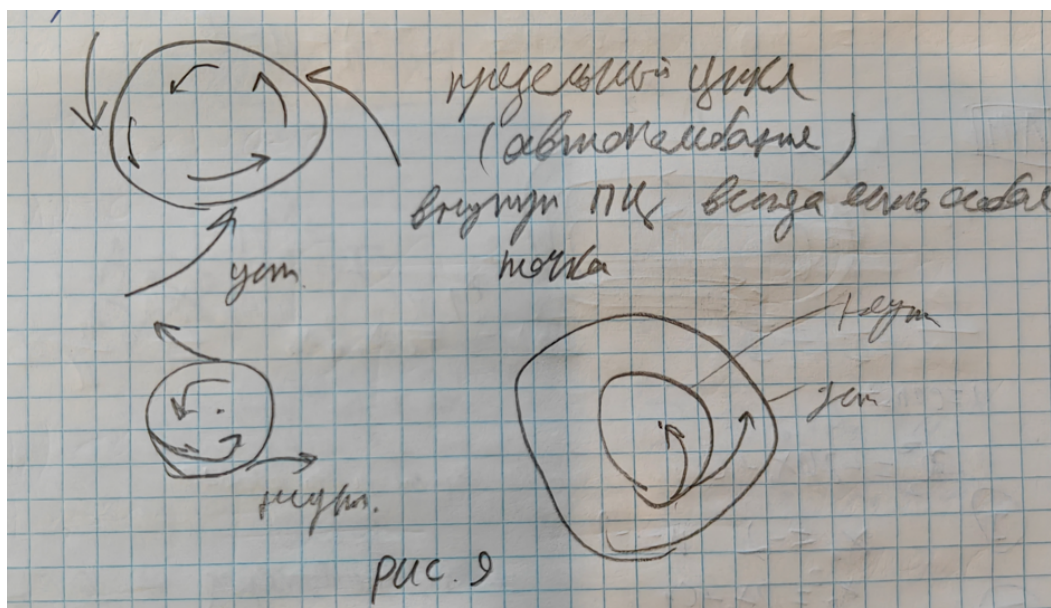 предельный цикл
(автоколебания)
внутри ПЦ всегда есть особая
точка
уст.
неуст
уст
неуст.
рис. 9